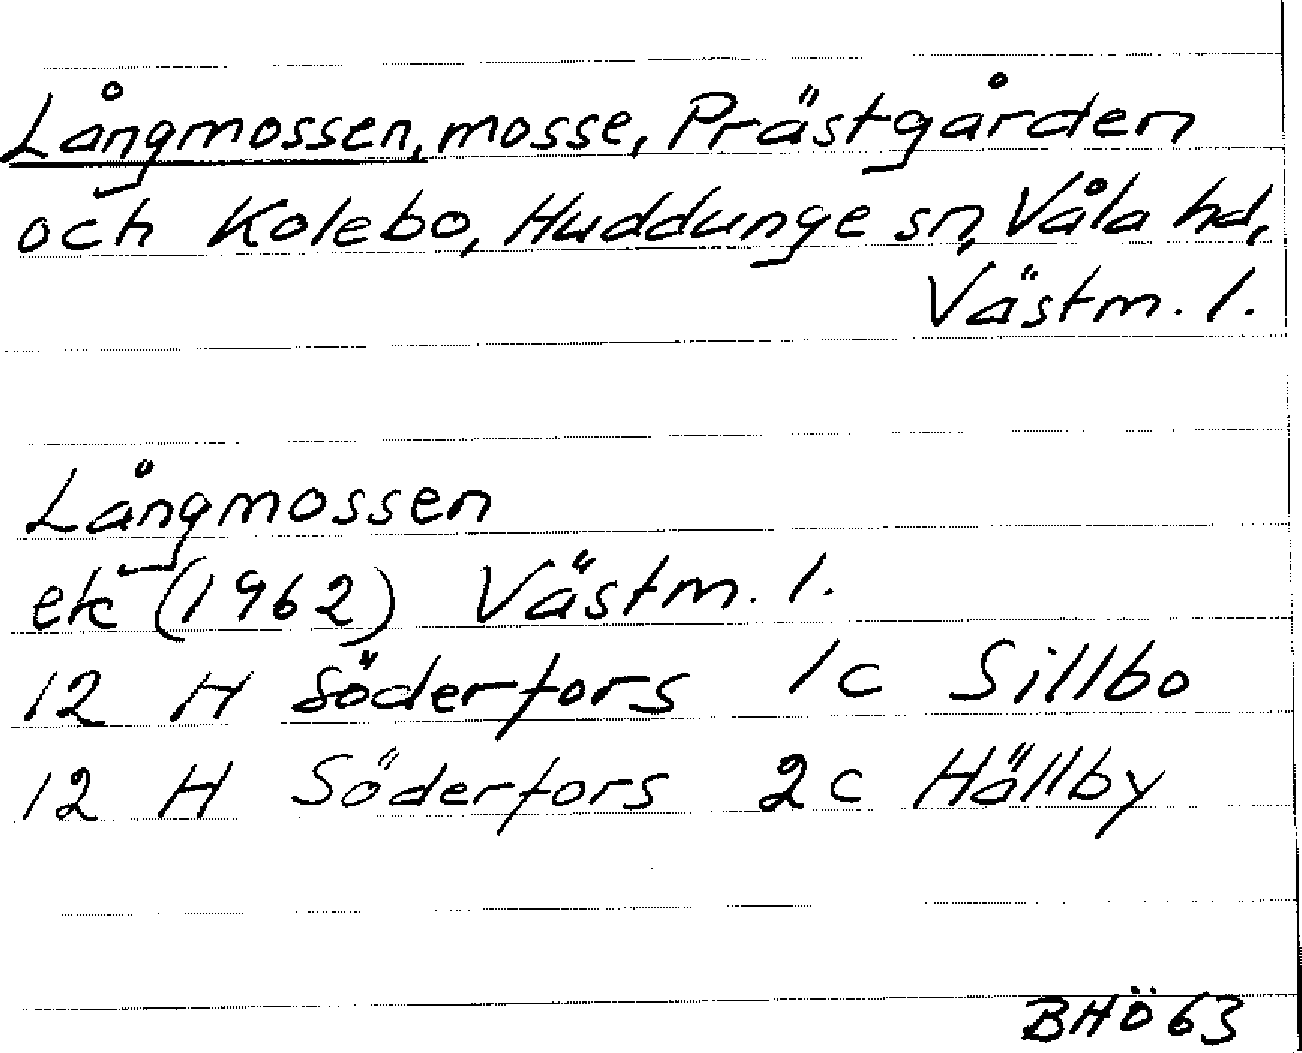 Långmossen, mosse, Prästgården
och Kolebo, Huddunge sn, Våla hd,
Västm. l.
Långmossen
ek (1962) Västm. l.
12 H Söderfors 1c Sillbo
12 H Söderfors 2c Hällby
BHÖ 63